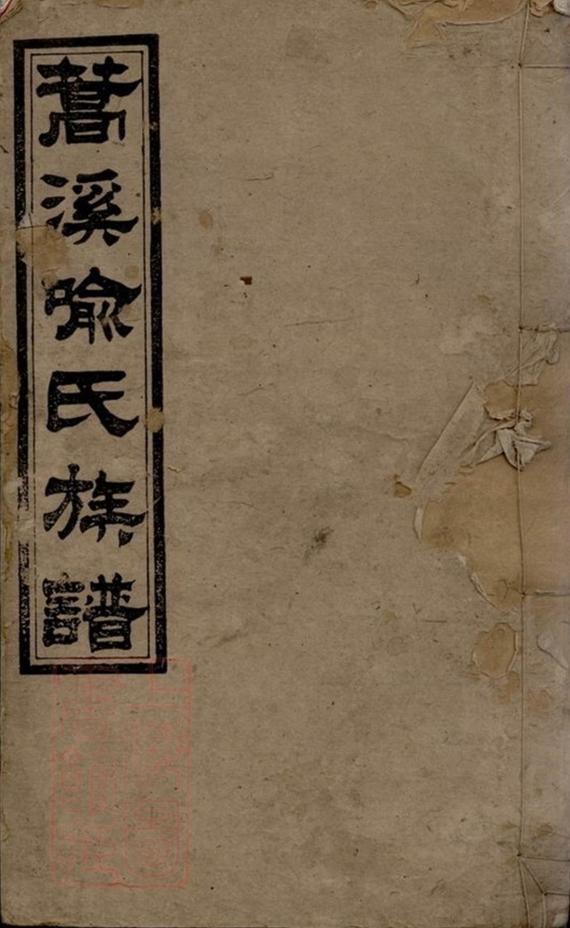 蒿溪喻氏族譜